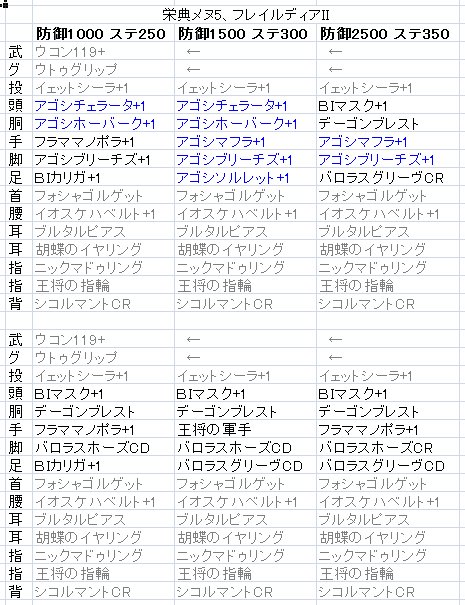 栄典メヌ5、フレイルディアII
防御1000 ステ250 防御1500 ステ300 防御2500 ステ350
武 ウコン119+ ← ←
グ ウトゥグリップ ← ←
投 イェットシーラ+1 イェットシーラ+1 イェットシーラ+1
頭 アゴシチェラータ+1 アゴシチェラータ+1 BIマスク+1
胴 アゴシホーバーク+1 アゴシホーバーク+1 デーゴンブレスト
手 フラママノポラ+1 アゴシマフラ+1 アゴシマフラ+1
脚 アゴシブリーチズ+1 アゴシブリーチズ+1 アゴシブリーチズ+1
足 BIカリガ+1 アゴシソルレット+1 バロラスグリーヴCR
首 フォシャゴルゲット フォシャゴルゲット フォシャゴルゲット
腰 イオスケハベルト+1 イオスケハベルト+1 イオスケハベルト+1
耳 ブルタルピアス ブルタルピアス ブルタルピアス
耳 胡蝶のイヤリング 胡蝶のイヤリング 胡蝶のイヤリング
指 ニックマドゥリング ニックマドゥリング ニックマドゥリング
指 王将の指輪 王将の指輪 王将の指輪
背 シコルマントCR シコルマントCR シコルマントCR
武 ウコン119+ ← ←
グ ウトゥグリップ ← ←
投 イェットシーラ+1 イェットシーラ+1 イェットシーラ+1
頭 BIマスク+1 BIマスク+1 BIマスク+1
胴 デーゴンブレスト デーゴンブレスト デーゴンブレスト
手 フラママノポラ+1 王将の軍手 フラママノポラ+1
脚 バロラスホーズCD バロラスホーズCD バロラスホーズCR
足 BIカリガ+1 バロラスグリーヴCD バロラスグリーヴCD
首 フォシャゴルゲット フォシャゴルゲット フォシャゴルゲット
腰 イオスケハベルト+1 イオスケハベルト+1 イオスケハベルト+1
耳 ブルタルピアス ブルタルピアス ブルタルピアス
耳 胡蝶のイヤリング 胡蝶のイヤリング 胡蝶のイヤリング
指 ニックマドゥリング ニックマドゥリング ニックマドゥリング
指 王将の指輪 王将の指輪 王将の指輪
背 シコルマントCR シコルマントCR シコルマントCR